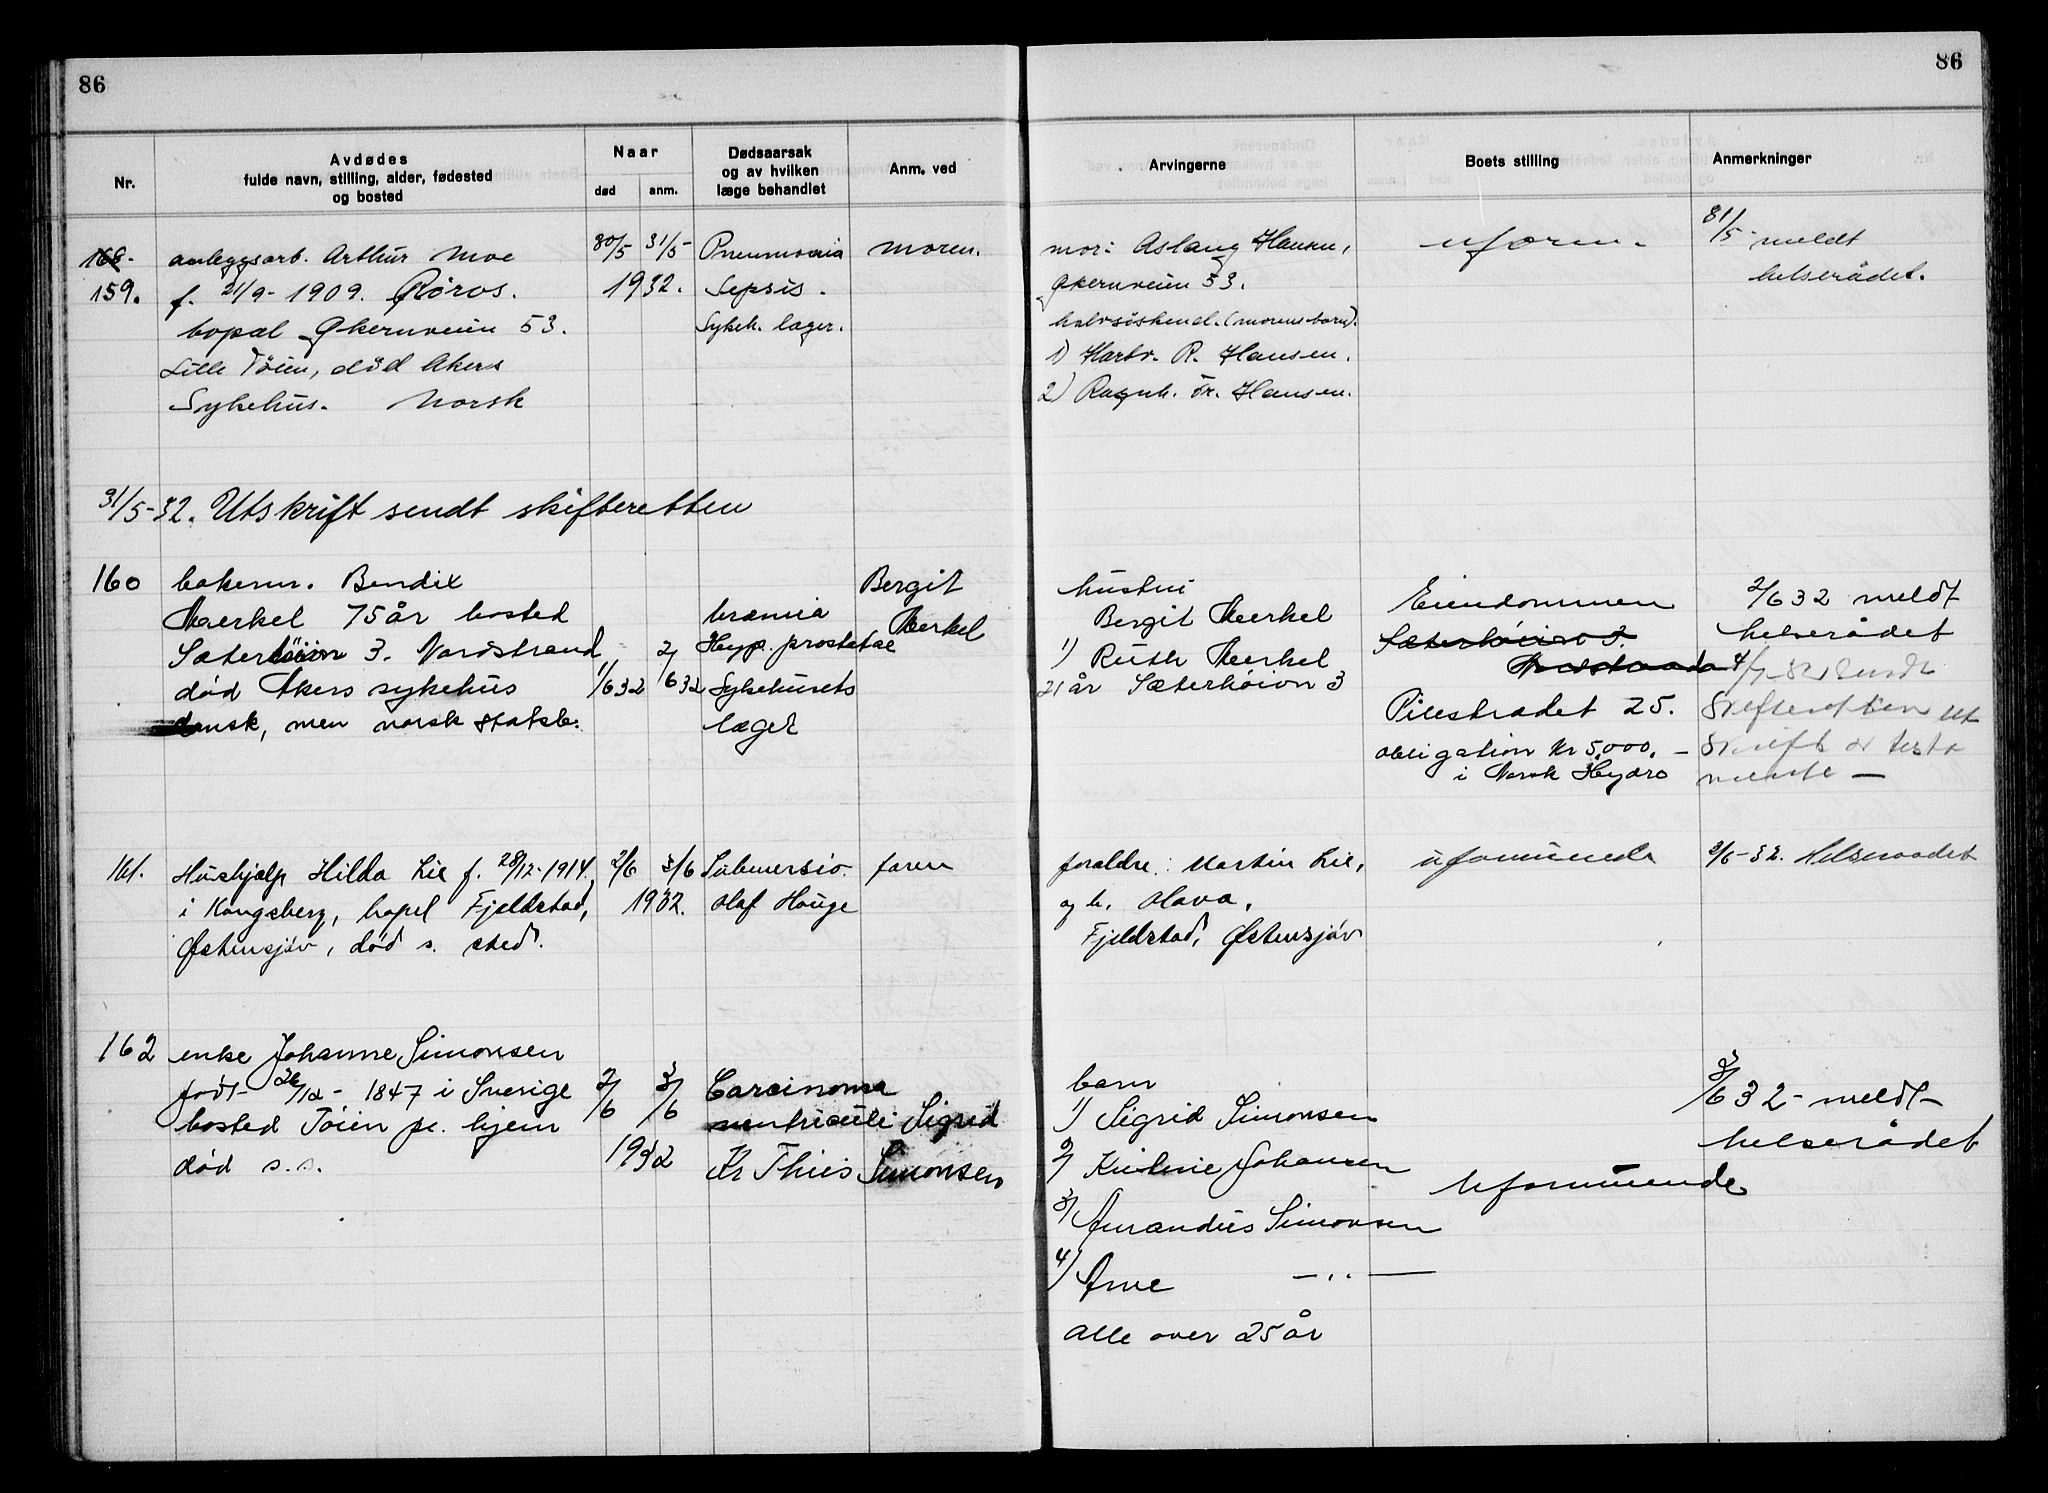 86
86
Nr.
Avdødes
fulde navn, stilling, alder, fødested
og bosted
Naar
død
anm.
Dødsaarsak
og av hvilken
læge behandlet
Anm. ved
Arvingerne
Boets stilling
Anmerkninger
168-
159.
anleggsarb. Arthur Moe
f. 21/9-1909. Røros.
bopæl Økernveien 53.
Lille Tøien, død Akers
Sykehus. Norsk
30/5 31/5-
1932.
Pneumonia
Sepsis.
Sykeh. læger.
moren.
mor: Aslaug Hansen,
Økernveien 53.
halvsøskend. (morens barn).
1) Hartv. R. Hansen.
2) Ragnh. Hansen.
uform.
31/5- meldt
helserådet.
31/5-32. Utskrift sendt skifteretten
160
bakerm. Bendix
Merkel 75 år bosted
Sæterhøien 3. Nordstrand
død Akers sykehus
dansk, men norsk statsb.
1/6 32
2/6 32
Uræmia
Hyp. prostatae
Sykehusets
læger
Bergit
Merkel
hustru
Bergit Merkel
1) Ruth Merkel
21 år Sæterhøivn 3
Eiendommen
Sæterhøivn 3.
Nordstrand
Pilestrædet 25.
obligation Kr 5.000.-
i Norsk Hydro
2/6 32 meldt
helserådet
4/7-32 sendt
Skifteretten ut
skrift av testa
mente —
161.
Hushjælp Hilda Lie f. 28/12-1914.
i Kongsberg, bopæl Fjeldstad,
Østensjøv., død s. sted.
2/6 3/6
1932.
Submersio.
Olaf Hauge
faren
foræeldre: Martin Lie,
og h. Olava,
Fjeldstad, Østensjøv
uformuende
3/6-32. Helseraadet
162
enke Johanne Simonsen
født 26/12-1847 i Sverige
bosted Tøien pl. hjem
død s.s.
2/6 3/6
1932
Carcinoma
ventriculi
Kr Thiis
Sigrid
Simonsen
barn
1) Sigrid Simonsen
2) Kristine Johansen
3) Amandus Simonsen
4) Arne —..—
Alle over 25 år
Uformuende
3/6 32- meldt-
helserådet